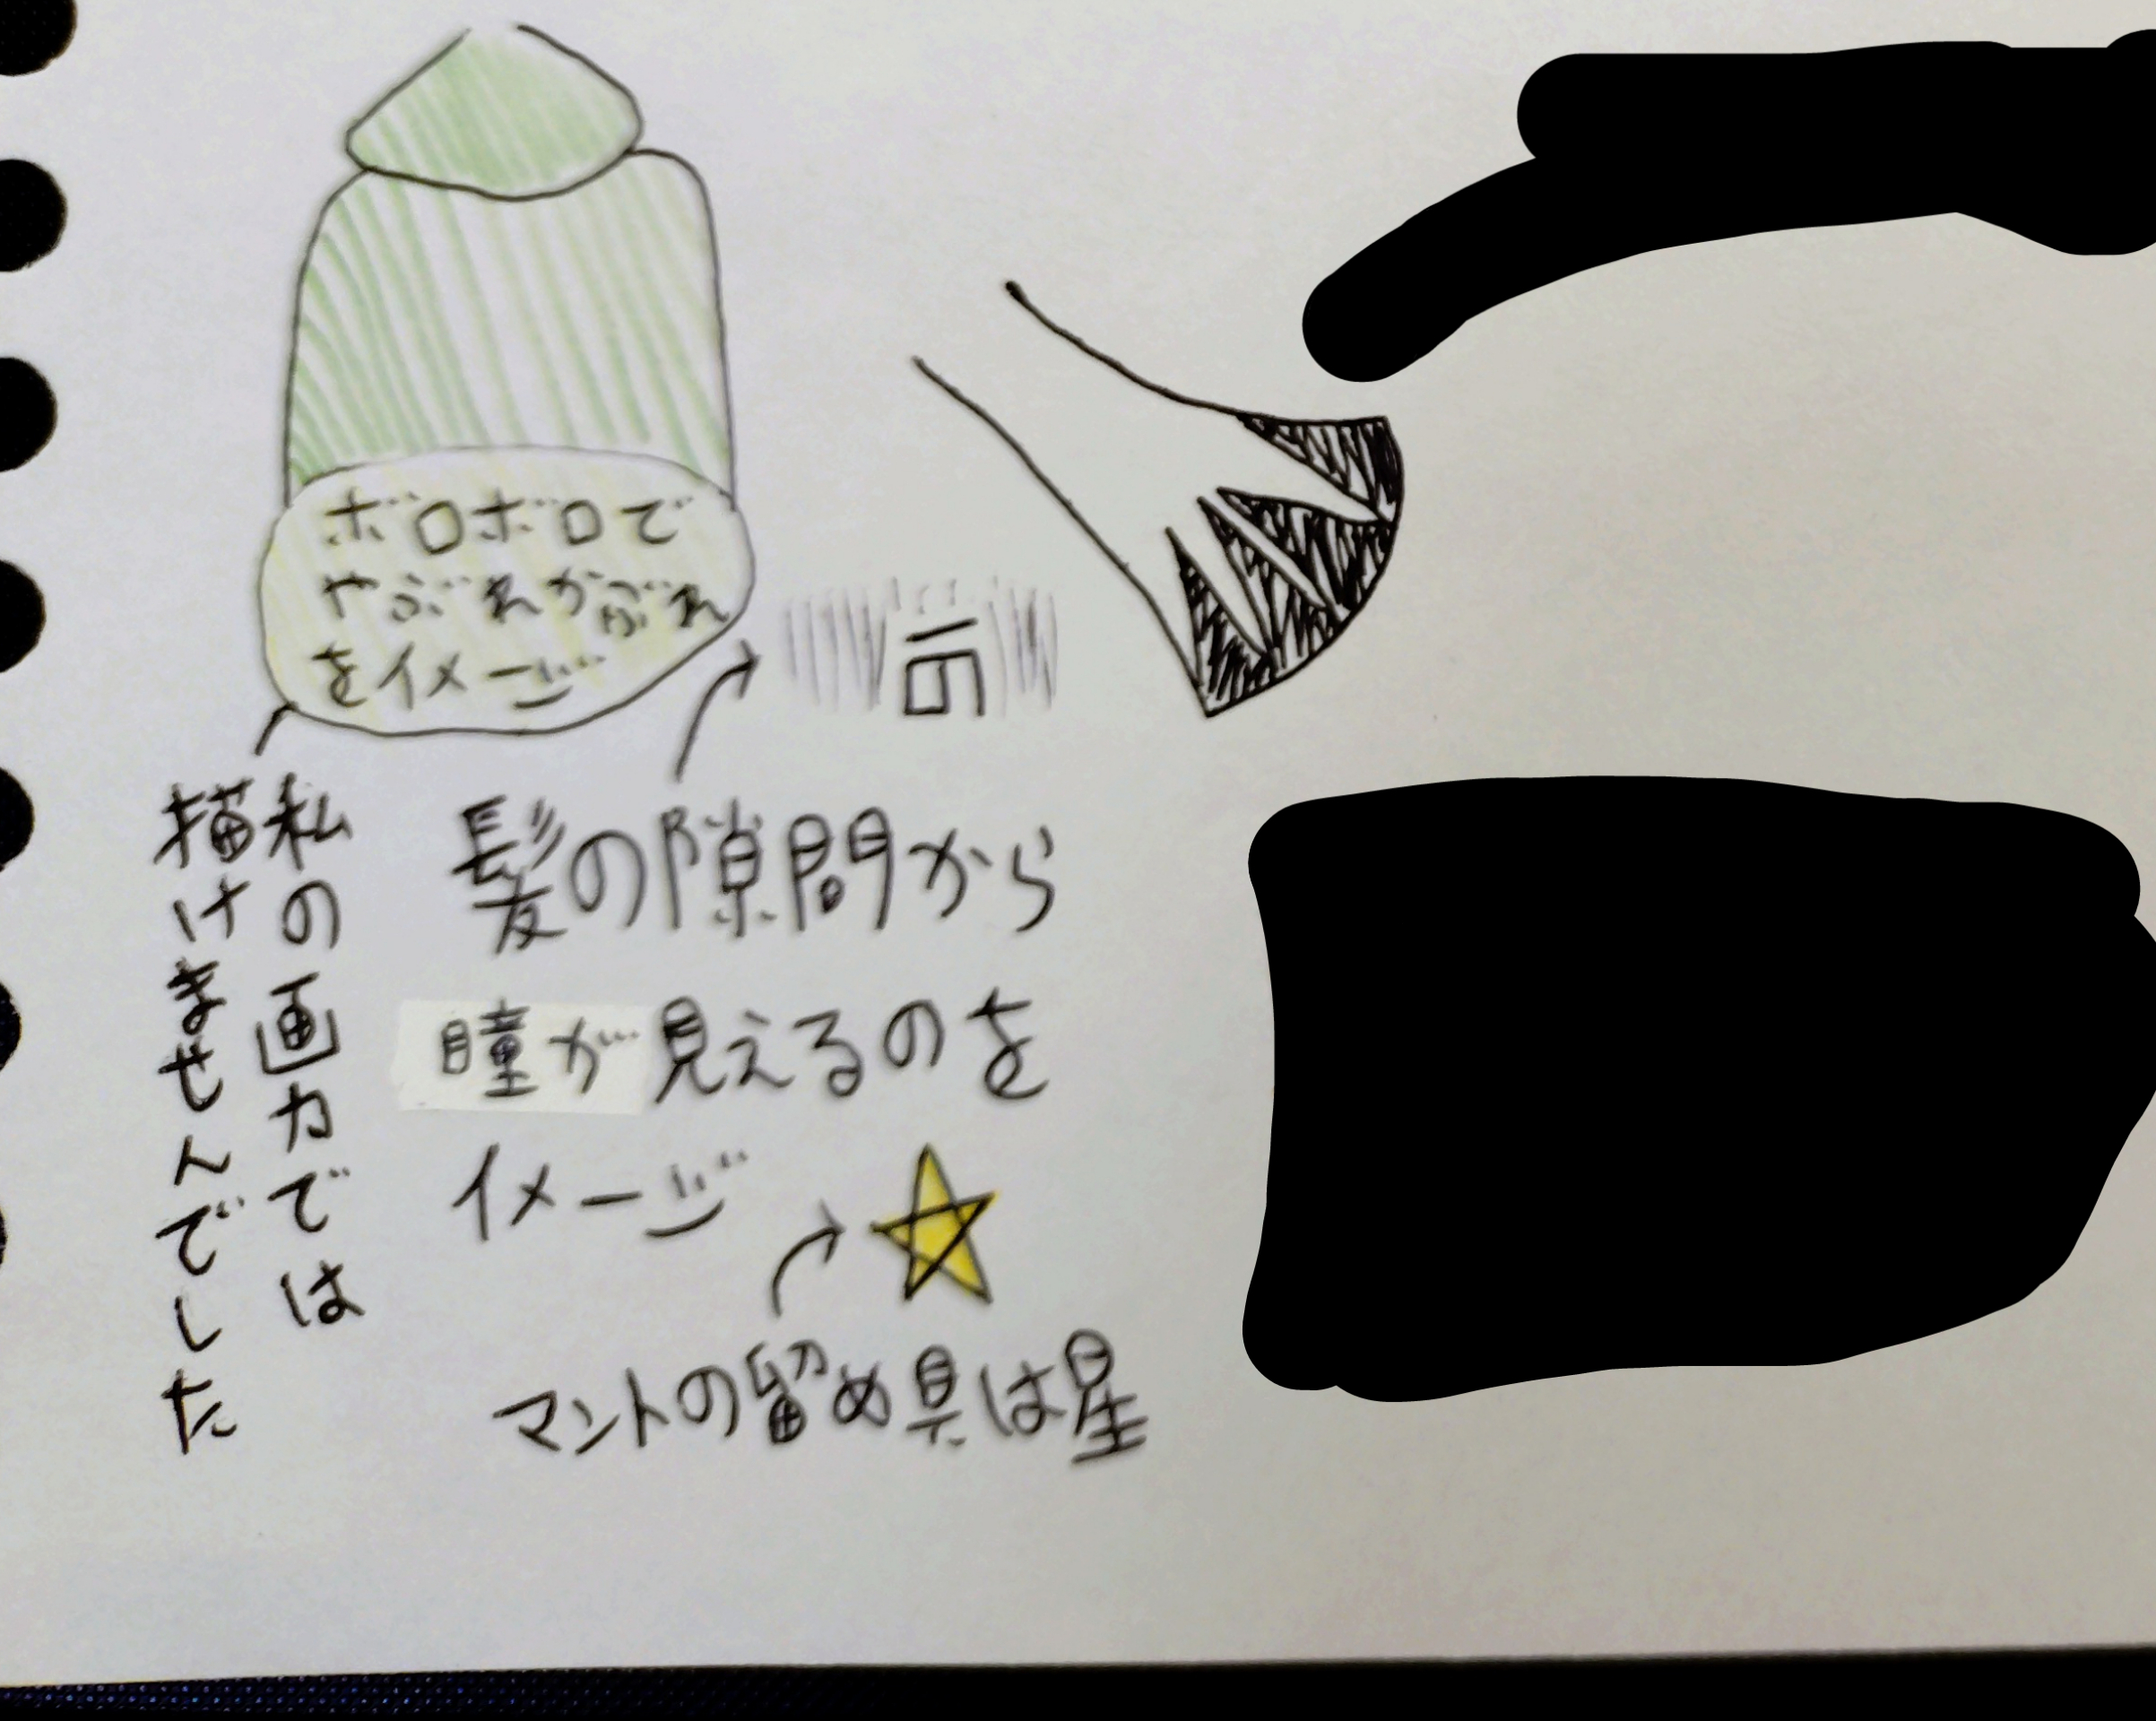 ボロボロで
やぶれかぶれ
をイメージ
私の画力では
描けませんでした
髪の隙間から
瞳が見えるのを
イメージ
マントの留め具は星